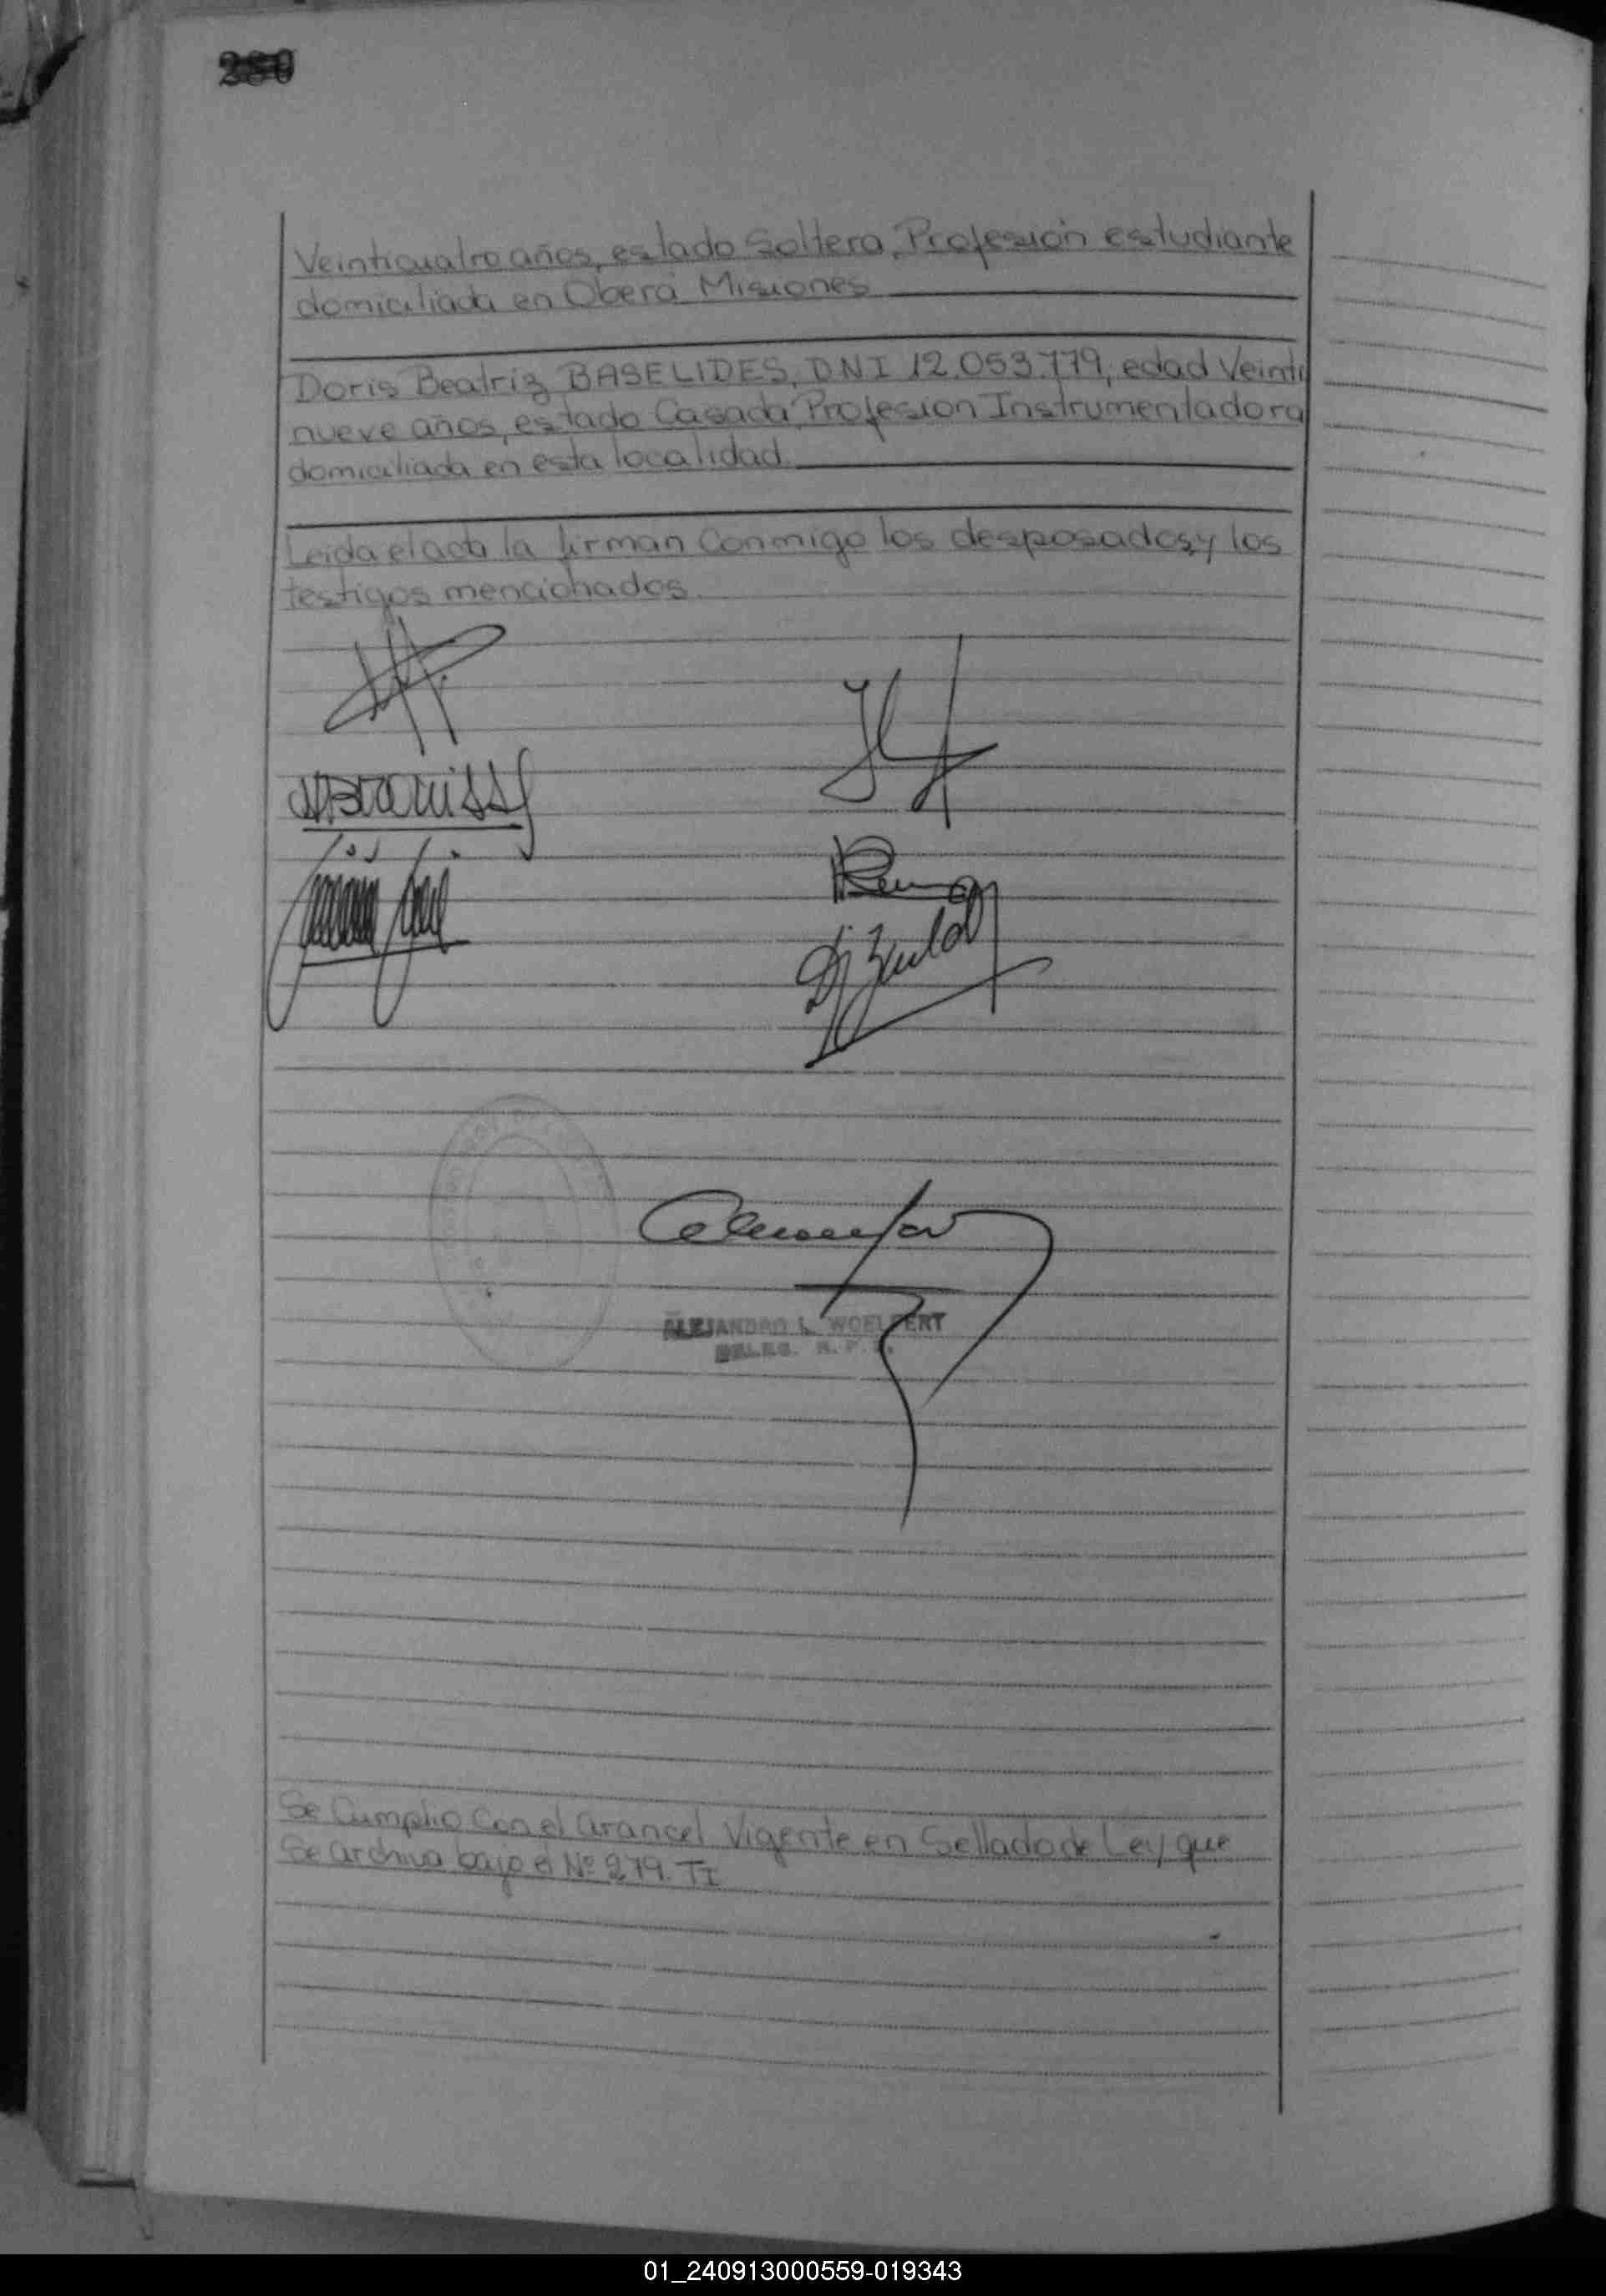 280
Veinticuatro años, estado Soltera, Profesión estudiante
domiciliada en Oberá Misiones
Doris Beatriz BASELIDES, DNI 12.053.779, edad Veinti
nueve años, estado Casada, Profesion Instrumentadora
domiciliada en esta localidad.
Leida el acta la firman Conmigo los desposados, y los
testigos mencionados.
ALEJANDRO L. WOELFERT
DELEG. R. P.
Se Cumplio Con el arancel Vigente en Sellado de Ley que
Se archiva bajo el Nº 279. TI
01_240913000559-019343